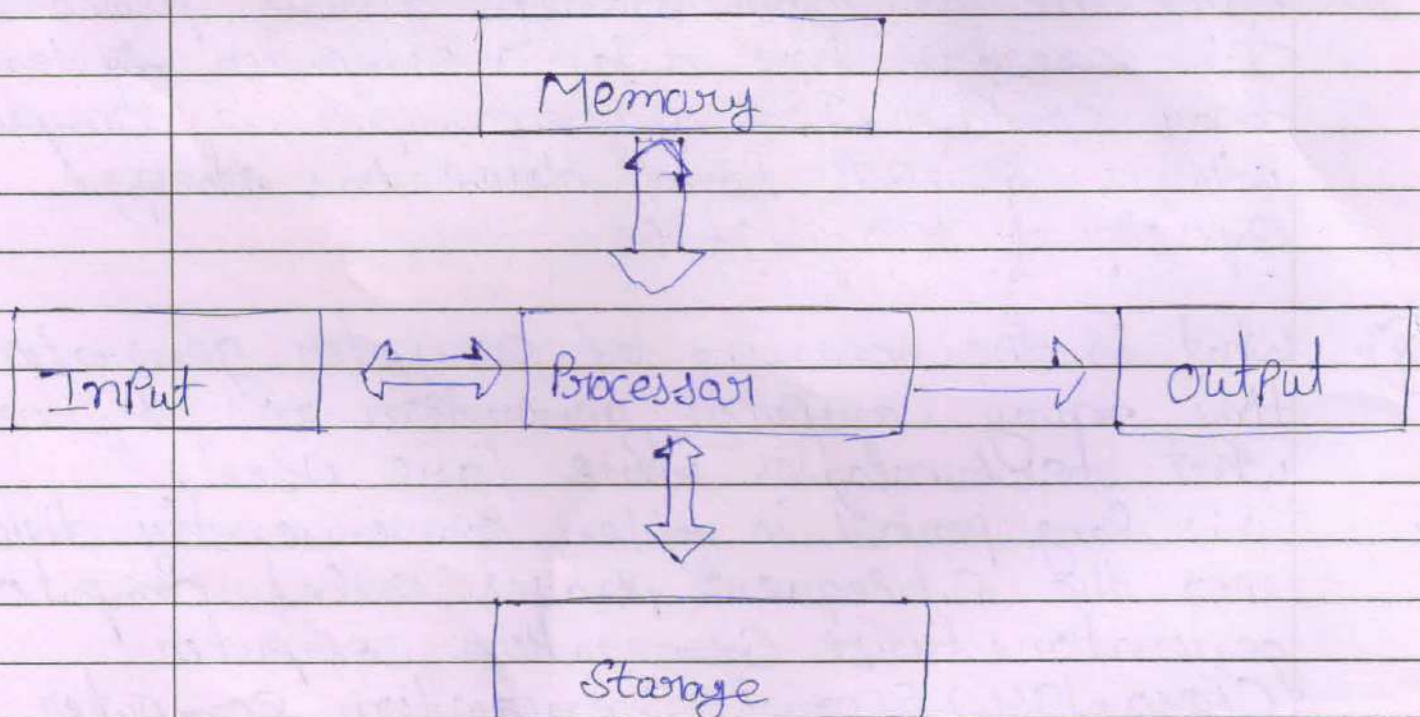 Memory
InPut Processor OutPut
Storage